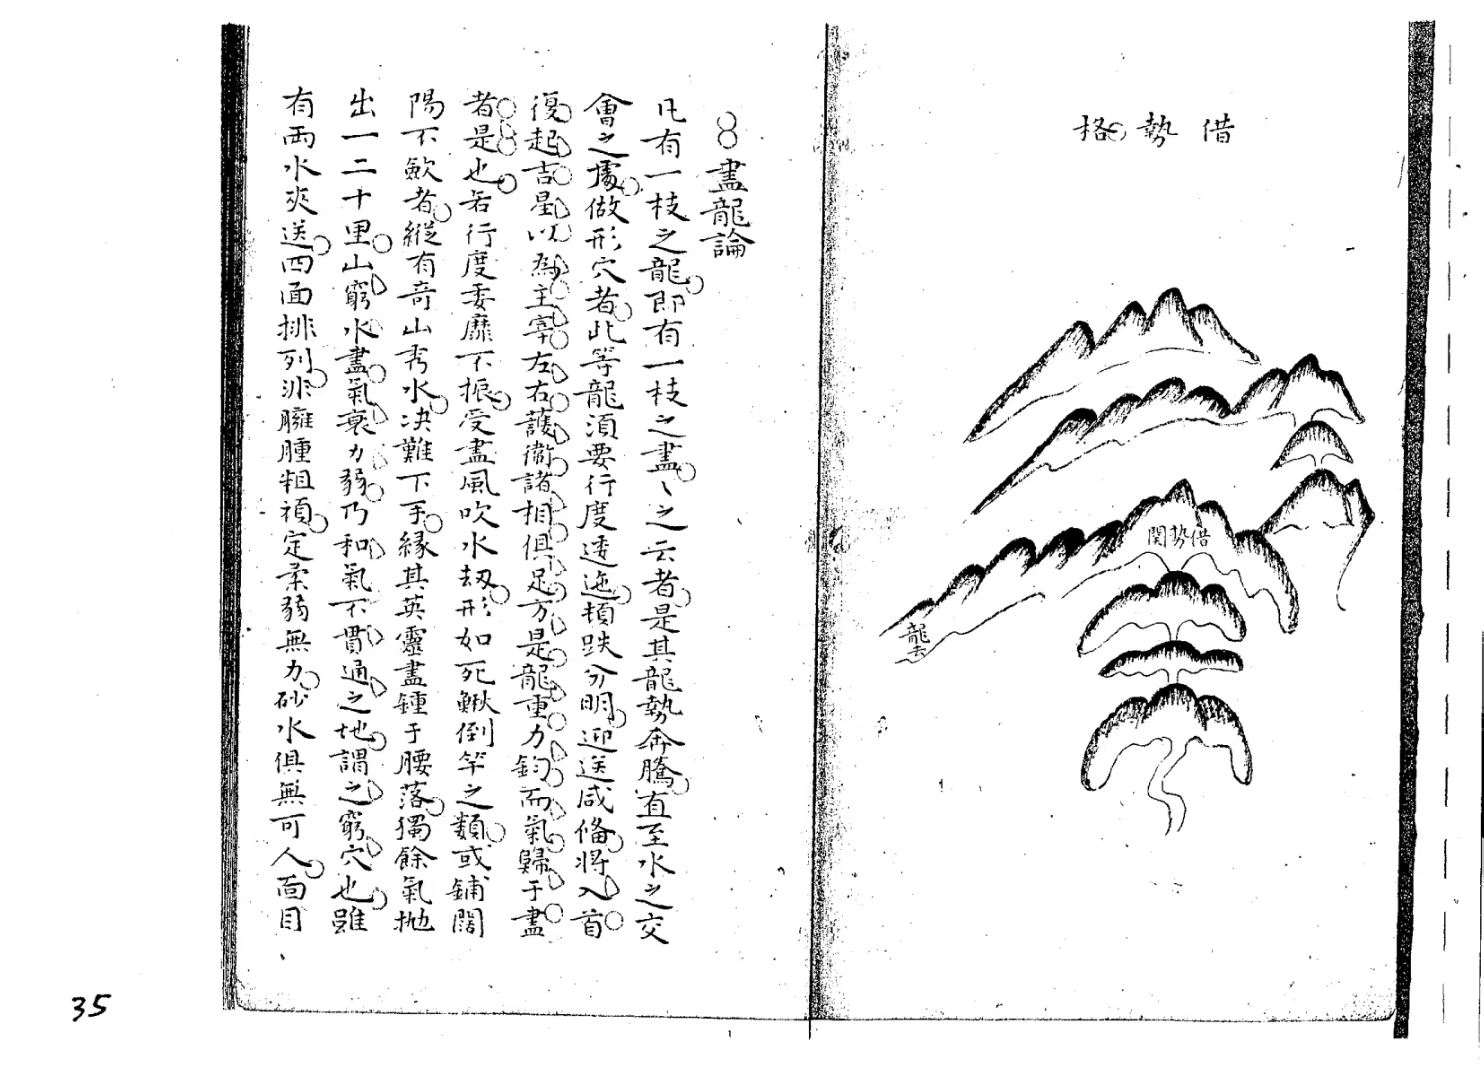 借勢格
借勢関
龍去
盡龍論
凡有一枝之龍即有一枝之盡〻之云者是其龍勢奔騰直至水之交
會之處做形穴者此等龍須要行度逶迤頓跌分明迎送咸俻將入首
復起吉星以為主宰左右護衛諸相俱足方是龍重力鈞而氣歸于盡
者是也若行度委靡不振受盡風吹水刼形如死鰍倒竿之類或鋪闊
陽不歛者縱有奇山秀水决難下手緣其英靈盡鍾于腰落獨餘氣拋
出一二十里山窮水盡氣衰力弱乃和氣不貫通之地謂之窮穴也雖
有兩水夾送四面排列非臃腫粗頑定柔弱無力砂水俱無可人面目
35